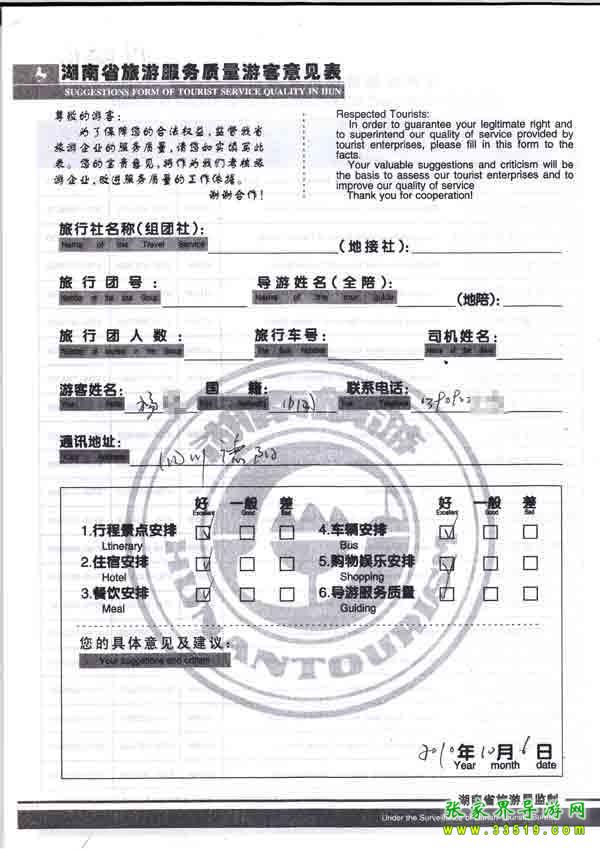 湖南省旅游服务质量游客意见表
SUGGESTIONS FORM OF TOURIST SERVICE QUALITY IN HUN
尊敬的游客：
为了保障您的合法权益，监督我省
旅游企业的服务质量，请您如实填写此
表。您的宝贵意见，将作为我们考核旅
游企业，改进服务质量的工作依据。
谢谢合作！
Respected Tourists:
In order to guarantee your legitimate right and
to superintend our quality of service provided by
tourist enterprises, please fill in this form to the
facts.
Your valuable suggestions and criticism will be
the basis to assess our tourist enterprises and to
improve our quality of service
Thank you for cooperation!
旅行社名称(组团社)： (地接社)：
Name of the Travel Service
旅行团号： 导游姓名(全陪)： (地陪)：
Number of the tour Group Name of the tour guide
旅行团人数： 旅行车号： 司机姓名：
Number of tourist in the Group The Bus Number Name of the driver
游客姓名： 杨 国籍： 中国 联系电话：
通讯地址： 四川德阳
Address
好 一般 差 好 一般 差
Excellent Good Bad Excellent Good Bad
1.行程景点安排 4.车辆安排
Ltinerary Bus
2.住宿安排 5.购物娱乐安排
Hotel Shopping
3.餐饮安排 6.导游服务质量
Meal Guiding
HUNANTOURISM
您的具体意见及建议：
Your suggestions and critism
2010年10月6日
Year month date
湖南省旅游局监制
Under the Surveillance of Hunan Tourism Bureau
张家界导游网
www.33519.com